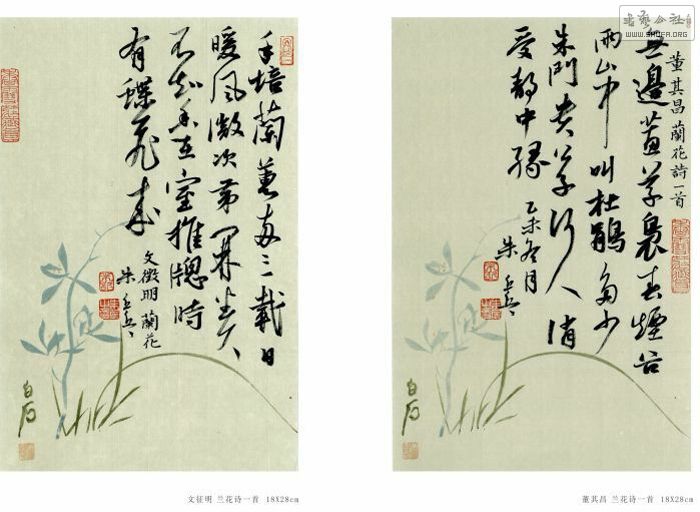 手培蘭蕙两三載日
暖風微次第開坐久
不知香在室推牕時
有蝶飛來
文徵明 蘭花
白石
文征明 兰花诗一首 18X28cm
书艺公社
WWW.SHUFA.ORG
董其昌蘭花詩一首
無邊蕙草裊春煙谷
雨山中叫杜鵑多少
朱門貴公子何人消
受靜中緣
乙未冬月
白石
董其昌 兰花诗一首 18X28cm